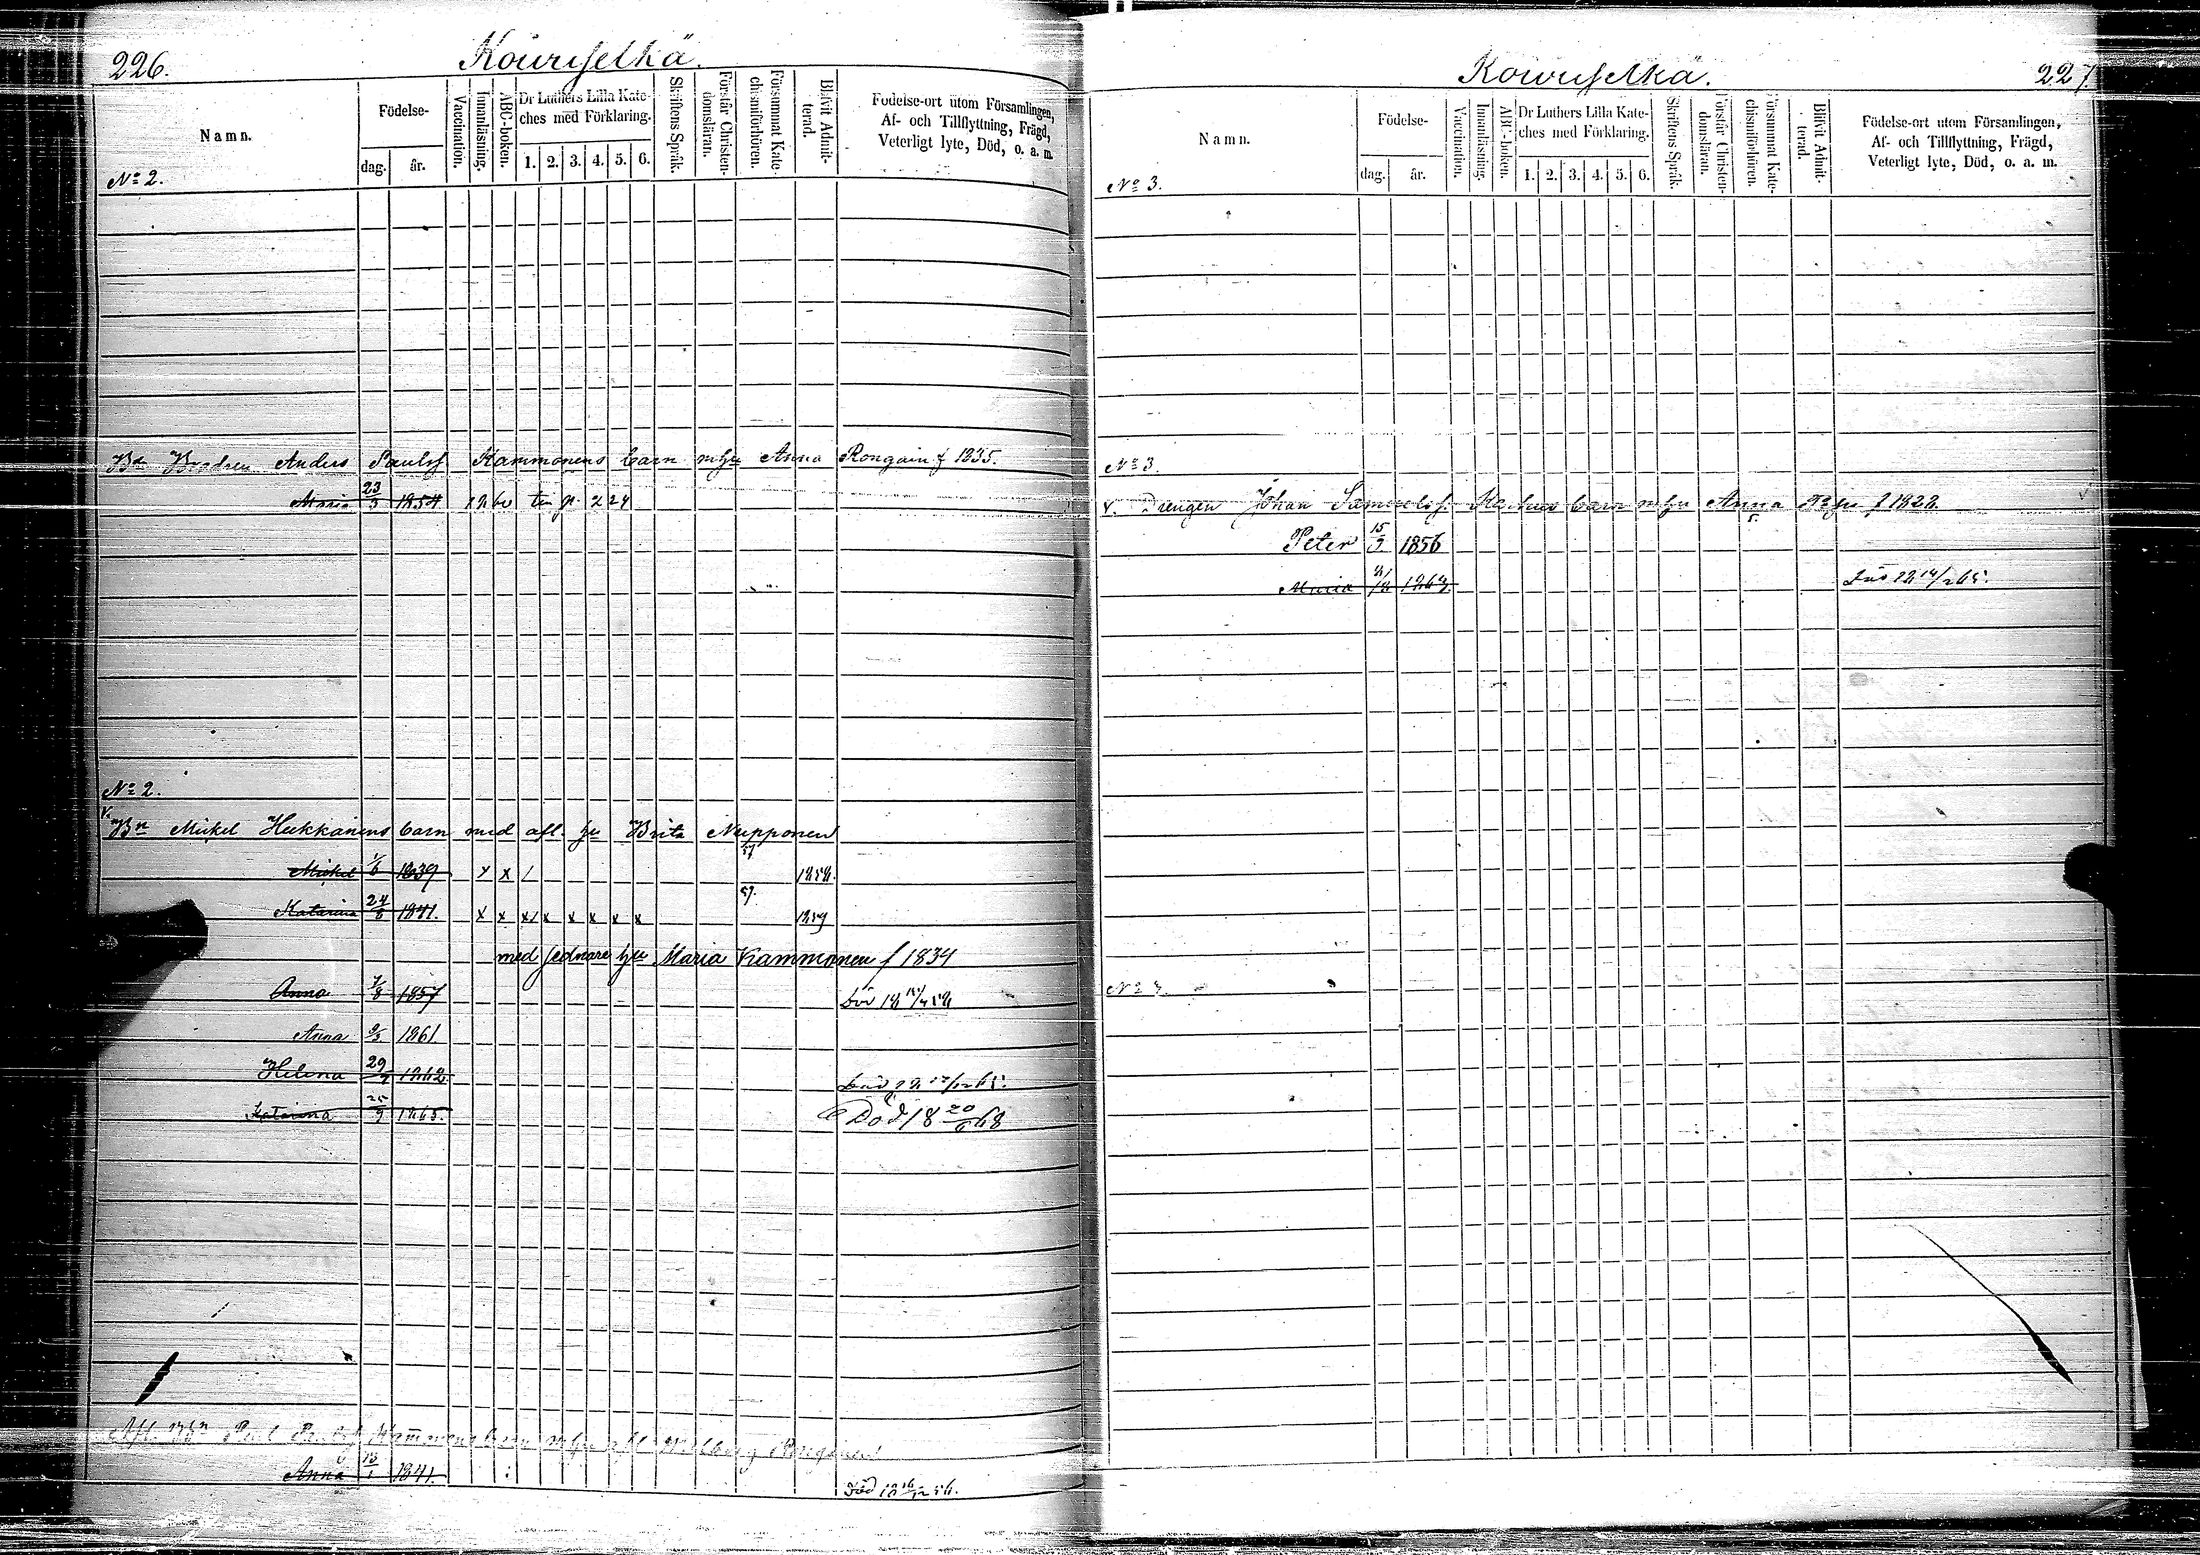 226.
Kouruselkä.
Namn.
Födelse-
dag.
år.
Vaccination.
Innanläsning.
ABC-boken.
Dr Luthers Lilla Kate-
ches med Förklaring.
1. 2. 3. 4. 5. 6.
Skriftens Språk.
Förstår Christen-
domsläran.
Försummat Kate-
chismiförhören.
Blifvit Admit-
terad.
Födelse-ort utom Församlingen,
Af- och Tillflyttning, Frägd,
Veterligt lyte, Död, o. a. m.
No 2.
Brodren Anders Paulsf Kammonens barn mhu Anna Rongain f 1835.
Maria 23/3 1854
No 2.
v. Bn Mickel Hukkanens barn med afl. hu Brita Nupponen
57
Mickel 1/6 1839 x x / 1858.
57.
Katarina 24/8 1841. x x x/x x x x x 1859
med sednare hu Maria Kammonen f 1834
Anna 7/8 1857
Anna 2/3 1861.
Helena 29/7 1862.
Katarina 25/9 1865. Död 18 20/6 68
Afl.
Anna 1841.
Kouruselkä.
227.
Namn.
Födelse-
dag.
år.
Vaccination.
Innanläsning.
ABC-boken.
Dr Luthers Lilla Kate-
ches med Förklaring.
1. 2. 3. 4. 5. 6.
Skriftens Språk.
Förstår Christen-
domsläran.
Försummat Kate-
chismiförhören.
Blifvit Admit-
terad.
Födelse-ort utom Församlingen,
Af- och Tillflyttning, Frägd,
Veterligt lyte, Död, o. a. m.
No 3.
No 3.
v. Drengen Johan Samuelsf. barn mhu Anna f 1828.
Peter 15/9 1856
Maria
No 3.